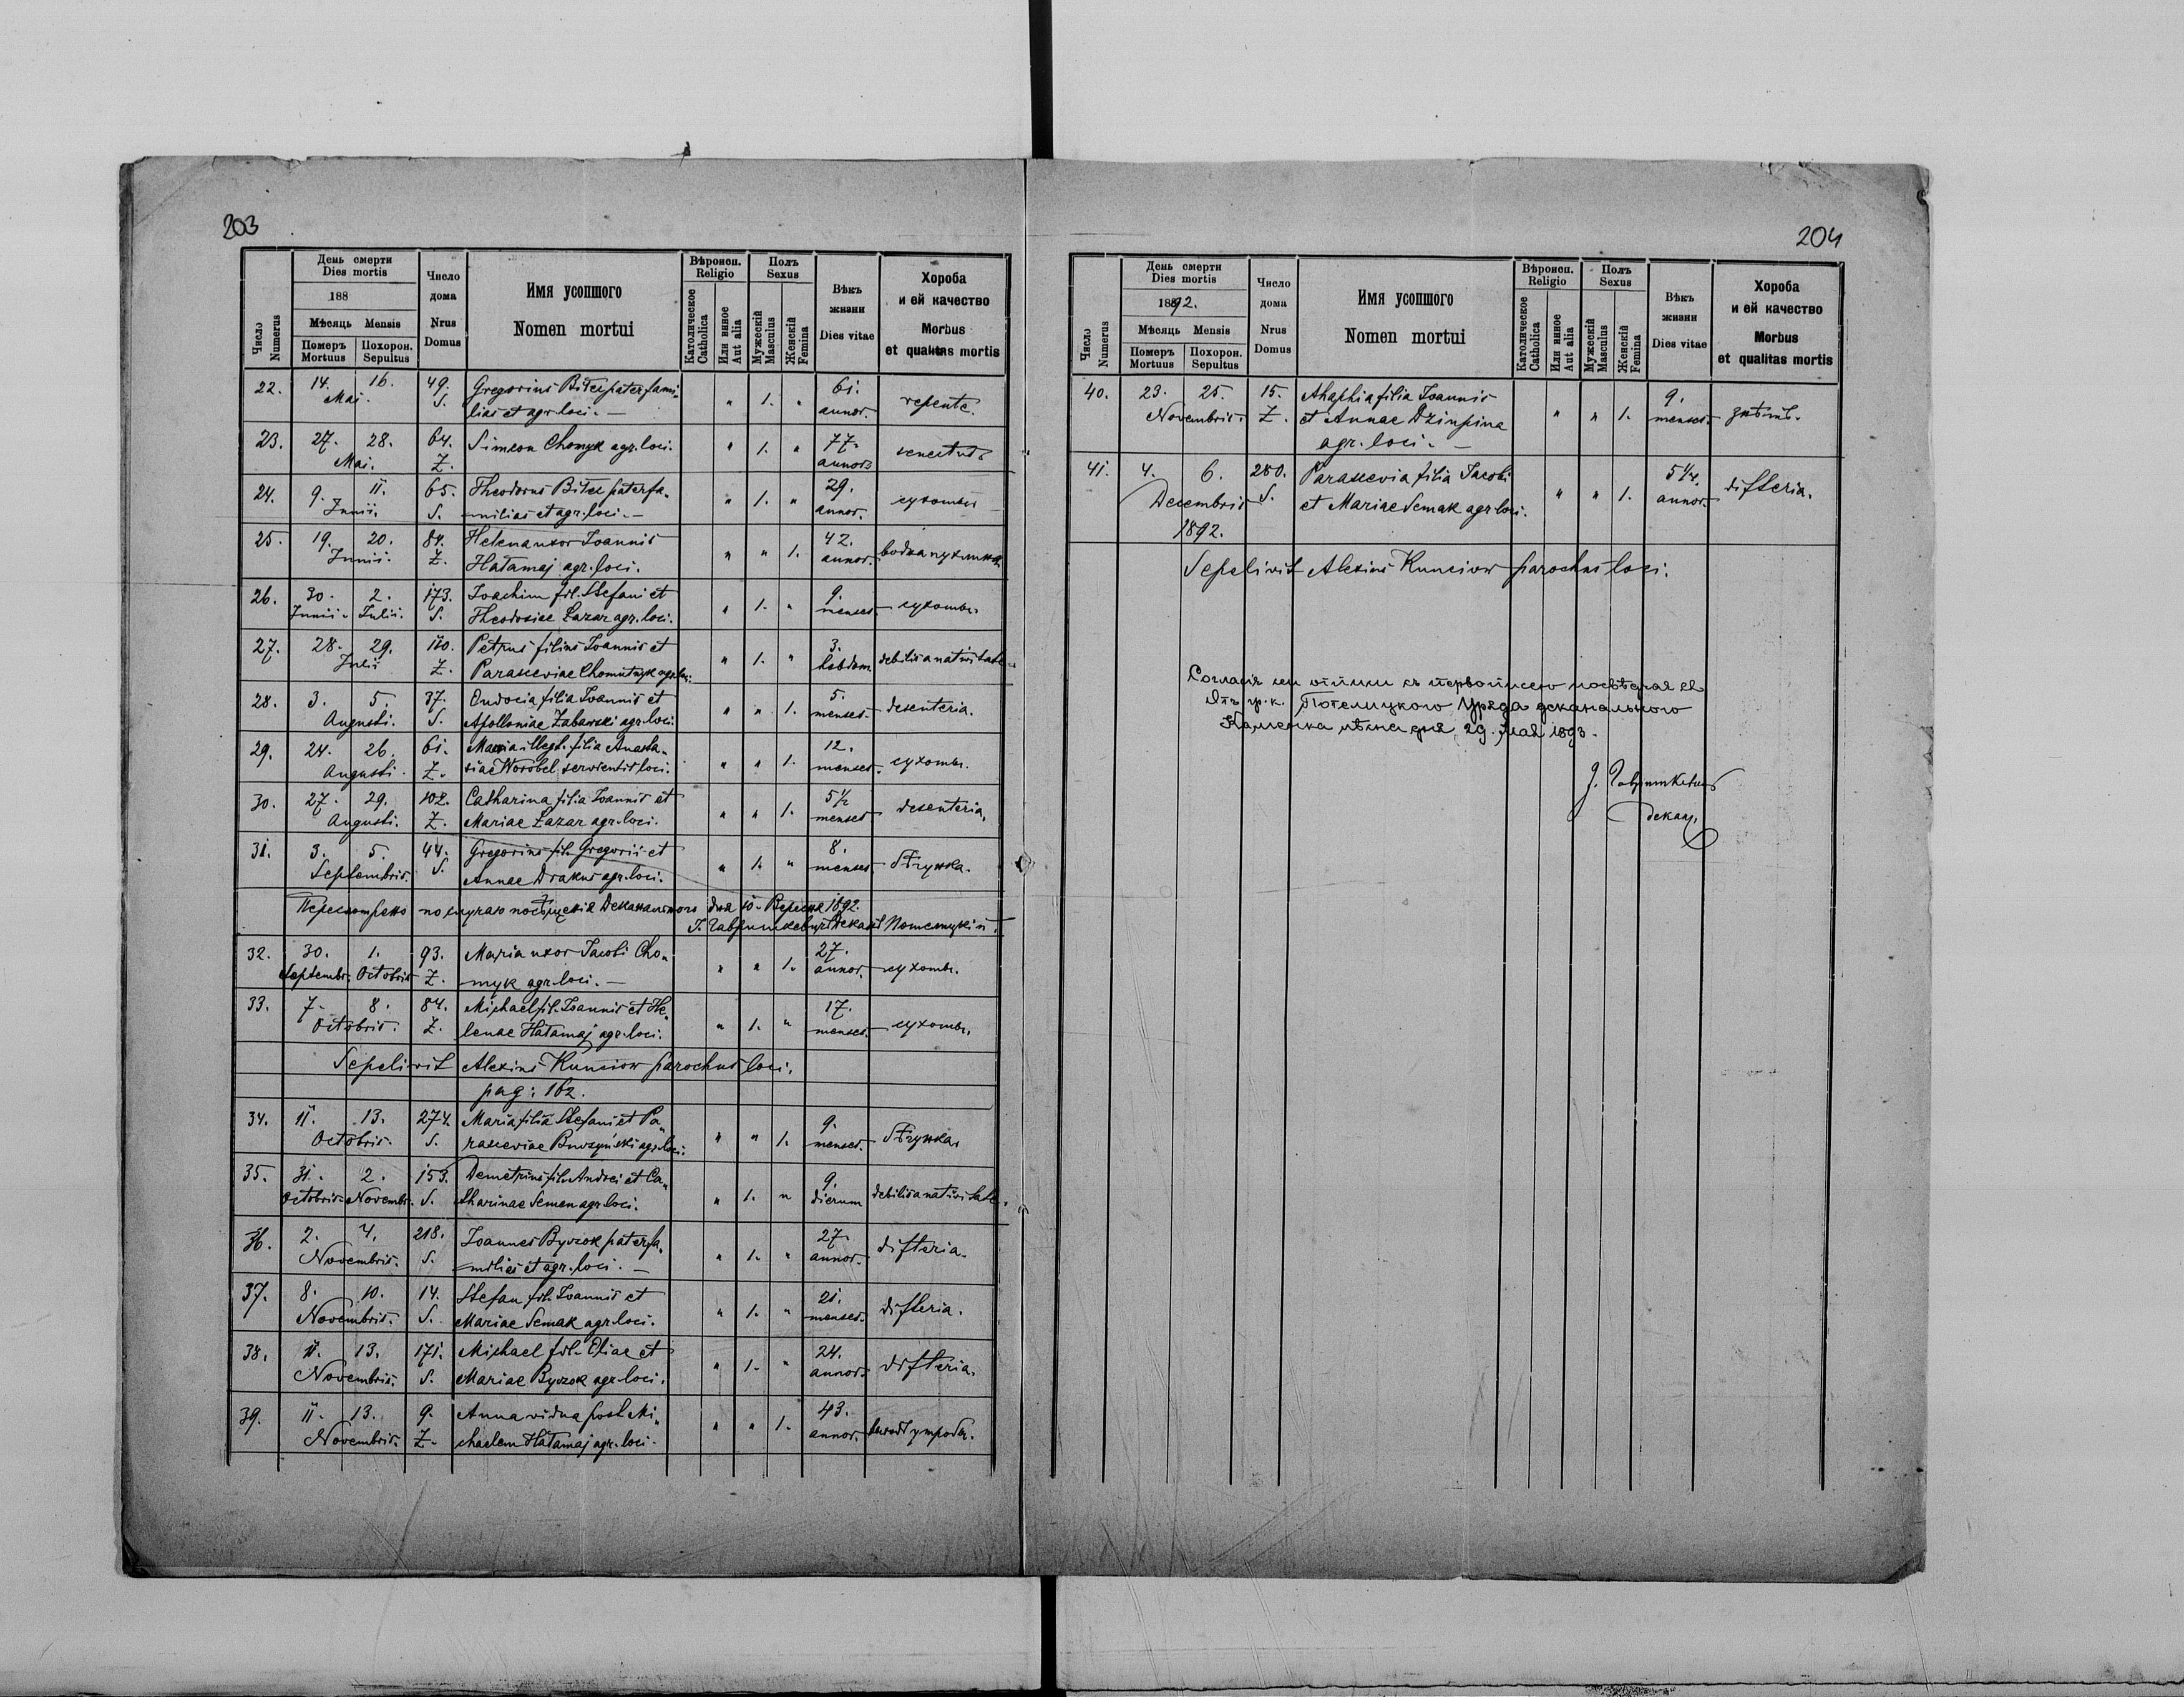 203
День смерти
Dies mortis
188
Мѣсяць Mensis
Померъ Mortuus
Похорон. Sepultus
Число Numerus
Число дома
Nrus Domus
Имя усопшого
Nomen mortui
Вѣроисп. Religio
Католическое Catholica
Или инное Aut alia
Полъ Sexus
Мужескій Masculus
Женскій Femina
Вѣкъ жизни
Dies vitae
Хороба и ей качество
Morbus et qualitas mortis
22. 14. 16. 49. Gregorius Bitel paterfami„ " 1. " 61. repente.
Mai. S. lias et agr. loci. — annor.
23. 27. 28. 64. Simeon Chomyk agr. loci. " 1. " 77. senectus
Mai. Z. annor.
24. 9. 11. 65. Theodorus Bitel paterfa„ " 1. " 29. сухоты
Junii. S. milias et agr. loci. — annor.
25. 19. 20. 84. Helena uxor Joannis " " 1. 42.
Junii. Z. Hałamaj agr. loci. annor.
26. 30. 2. 173. Joachim fil. Stefani et " 1. " 9. сухоты.
Junii. Julii. S. Theodosiae Lazar agr. loci. menses
27. 28. 29. 110. Petrus filius Joannis et " 1. " 3. debilis a nativitate
Julii Z. Parasceviae agr. loci. hebdom.
28. 3. 5. 37. Eudocia filia Joannis et " " 1. 5. desenteria.
Augusti. S. Apolloniae Zabawski agr. loci. menses.
29. 24. 26. 61. Maria illegt. filia Anasta„ " " 1. 12. сухоты.
Augusti. Z. siae Worobel servientis loci. menses.
30. 27. 29. 102. Catharina filia Joannis et " " 1. 5½ desenteria.
Augusti. Z. Mariae Lazar agr. loci. menses
31. 3. 5. 44. Gregorius fil. Gregorii et " 1. " 8.
Septembris. S. Annae Drakus agr. loci. menses
Пересмотрено по случаю посѣщенія Деканального дня 10. Вересня 1892.
32. 30. 1. 93. Maria uxor Jacobi Cho„ " " 1. 27. сухоты.
Septembr. Octobris Z. myk agr. loci. — annor.
33. 7. 8. 84. Michael fil. Joannis et He„ " 1. " 17. сухоты.
Octobris. Z. lenae Hałamaj agr. loci. menses.
Sepelivit Alexius Kunciow parochus loci.
pag: 162.
34. 11. 13. 274. Maria filia Stefani et Pa„ " " 1. 9.
Octobris. S. rasceviae agr. loci. menses.
35. 31. 2. 153. Demetrius fil. Andrei et Ca„ " 1. " 9. debilis a nativitate.
Octobris Novembr. S. tharinae Semen agr. loci. dierum
36. 2. 4. 218. Joannes Byczok paterfa„ " 1. " 27. difteria.
Novembris. S. milias et agr. loci. — annor.
37. 8. 10. 14. Stefan fil. Joannis et " 1. " 21. difteria.
Novembris. S. Mariae Semak agr. loci. menses.
38. 11. 13. 171. Michael fil. Eliae et " 1. " 24. difteria.
Novembris. S. Mariae Byczok agr. loci. annor.
39. 11. 13. 9. Anna vidua post Mi„ " " 1. 43.
Novembris. Z. chaelem Hałamaj agr. loci. annor.
204
День смерти
Dies mortis
1892.
Мѣсяць Mensis
Померъ Mortuus
Похорон. Sepultus
Число Numerus
Число дома
Nrus Domus
Имя усопшого
Nomen mortui
Вѣроисп. Religio
Католическое Catholica
Или инное Aut alia
Полъ Sexus
Мужескій Masculus
Женскій Femina
Вѣкъ жизни
Dies vitae
Хороба и ей качество
Morbus et qualitas mortis
40. 23. 25. 15. Ahaphia filia Joannis " " 1. 9.
Novembris. Z. et Annae agr. loci. — menses.
41. 4. 6. 280. Parascevia filia Jacobi " " 1. 5¼ difteria.
Decembris S. et Mariae Semak agr. loci. annor.
1892.
Sepelivit Alexius Kunciow parochus loci.
Отъ гр. к. Потелицкого Уряда деканального
Каменка дня 29. Мая 1893.
декан.